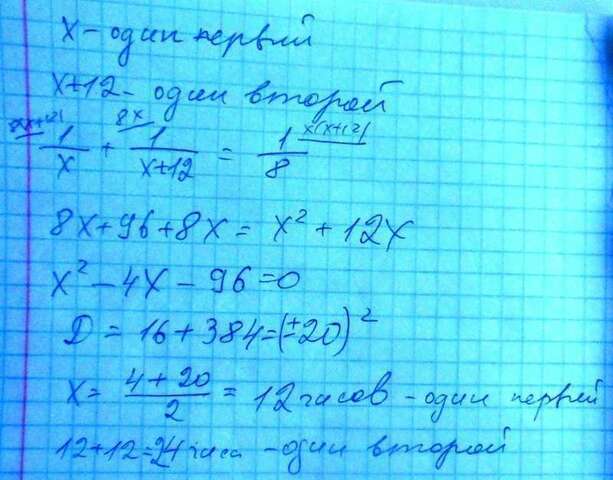 x - один первый
x+12 - один второй
8(x+12) 8x x(x+12)
1/x + 1/(x+12) = 1/8
8x+96+8x = x² + 12x
x² - 4x - 96 = 0
D = 16 + 384 = (±20)²
x = (4+20)/2 = 12 часов - один первый
12+12=24 часа - один второй